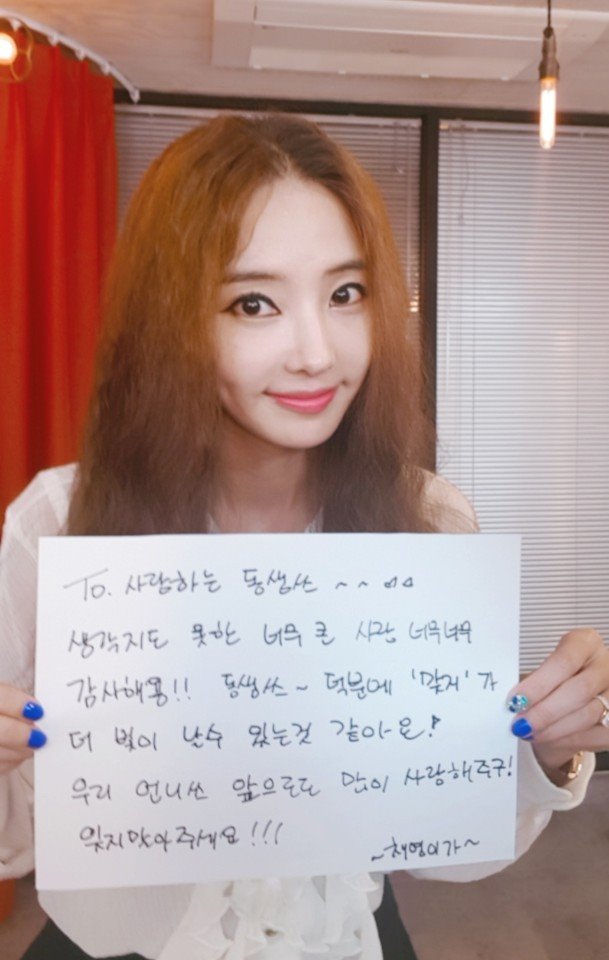 To. 사랑하는 동생쓰 ~ ~ ♡♡
생각지도 못한 너무 큰 사랑 너무너무
감사해용!! 동생쓰~ 덕분에 '맞저'가
더 빛이 난수 있는것 같아요!
우리 언니쓰 앞으로도 많이 사랑해주구!
잊지말아주세요!!!
~채영이가~